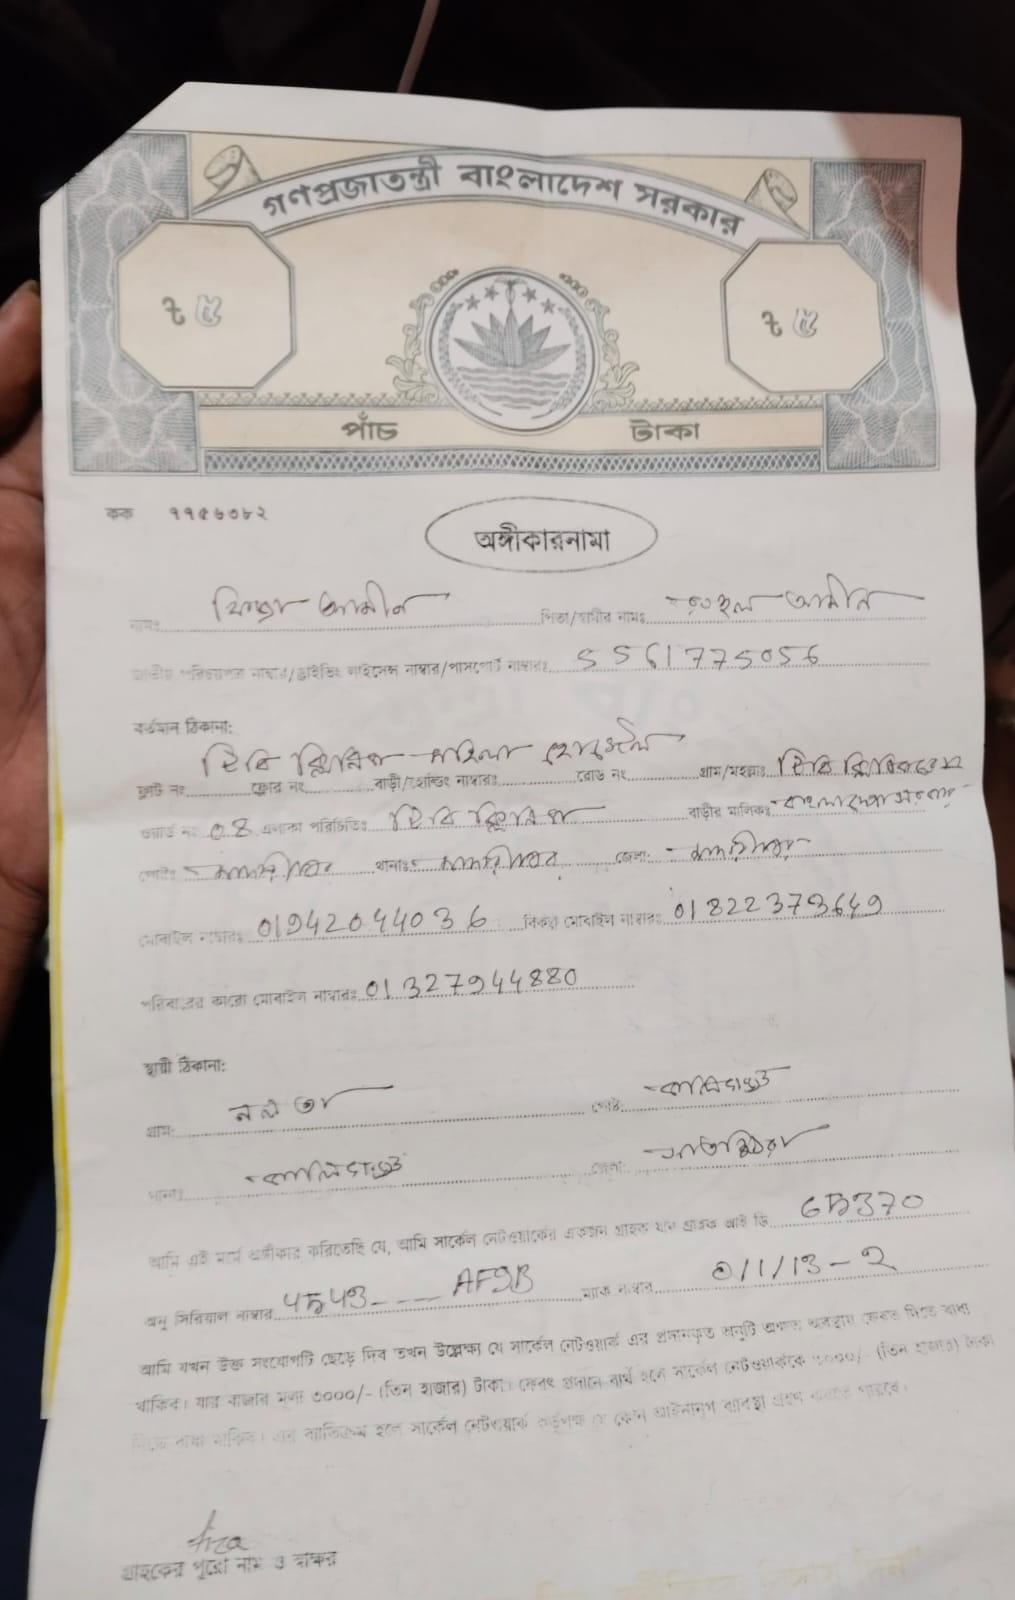 গণপ্রজাতন্ত্রী বাংলাদেশ সরকার
৳ ৫ ৳ ৫
পাঁচ টাকা
কক ৭৭৫৬৩৮২
অঙ্গীকারনামা
নামঃ আমীন পিতা/স্বামীর নামঃ রুহুল আমীন
জাতীয় পরিচয়পত্র নাম্বার/ড্রাইভিং লাইসেন্স নাম্বার/পাসপোর্ট নাম্বারঃ 5561775056
বর্তমান ঠিকানা:
টিবি ক্লিনিক মহিলা হোস্টেল
ফ্লাট নং ফ্লোর নং বাড়ী/হোল্ডিং নাম্বারঃ রোড নং গ্রাম/মহল্লাঃ টিবি ক্লিনিক
ওয়ার্ড নং 04 এলাকা পরিচিতিঃ টিবি ক্লিনিক বাড়ীর মালিকঃ বাংলাদেশ সরকার
পোষ্টঃ থানাঃ জেলা:
মোবাইল নাম্বারঃ 01942044036 বিকল্প মোবাইল নাম্বারঃ 01822373649
পরিবারের কারো মোবাইল নাম্বারঃ 01327944880
স্থায়ী ঠিকানা:
গ্রাম: নলতা পোষ্ট: কালিগঞ্জ
থানাঃ কালিগঞ্জ জেলা: সাতক্ষিরা
আমি এই মর্মে অঙ্গীকার করিতেছি যে, আমি সার্কেল নেটওয়ার্কের একজন গ্রাহক যার গ্রাহক আই ডি
অনু সিরিয়াল নাম্বার ম্যাক নাম্বার 0/1/13-2
আমি যখন উক্ত সংযোগটি ছেড়ে দিব তখন উল্লেক্ষ্য যে সার্কেল নেটওয়ার্ক এর প্রদানকৃত অনুটি অক্ষত অবস্থায় ফেরত দিতে বাধ্য
থাকিব। যার বাজার মূল্য ৩০০০/- (তিন হাজার) টাকা। ফেরৎ প্রদানে ব্যর্থ হলে সার্কেল নেটওয়ার্ককে ৩০০০/- (তিন হাজার) টাকা
দিতে বাধ্য থাকিব। এর ব্যতিক্রম হলে সার্কেল নেটওয়ার্ক কর্তৃপক্ষ যে কোন আইনানুগ ব্যবস্থা গ্রহণ করতে পারবে।
গ্রাহকের পুরো নাম ও স্বাক্ষর